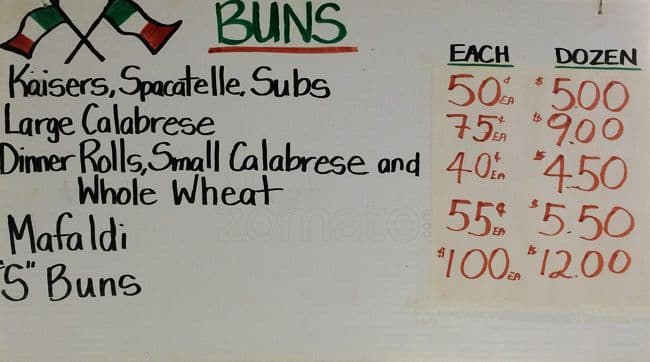 BUNS
EACH DOZEN
Kaisers, Spacatelle, Subs 50¢ EA $5.00
Large Calabrese 75¢ EA $9.00
Dinner Rolls, Small Calabrese and 40¢ EA $4.50
Whole Wheat
Mafaldi 55¢ EA $5.50
"S" Buns $1.00 EA $12.00
zomato